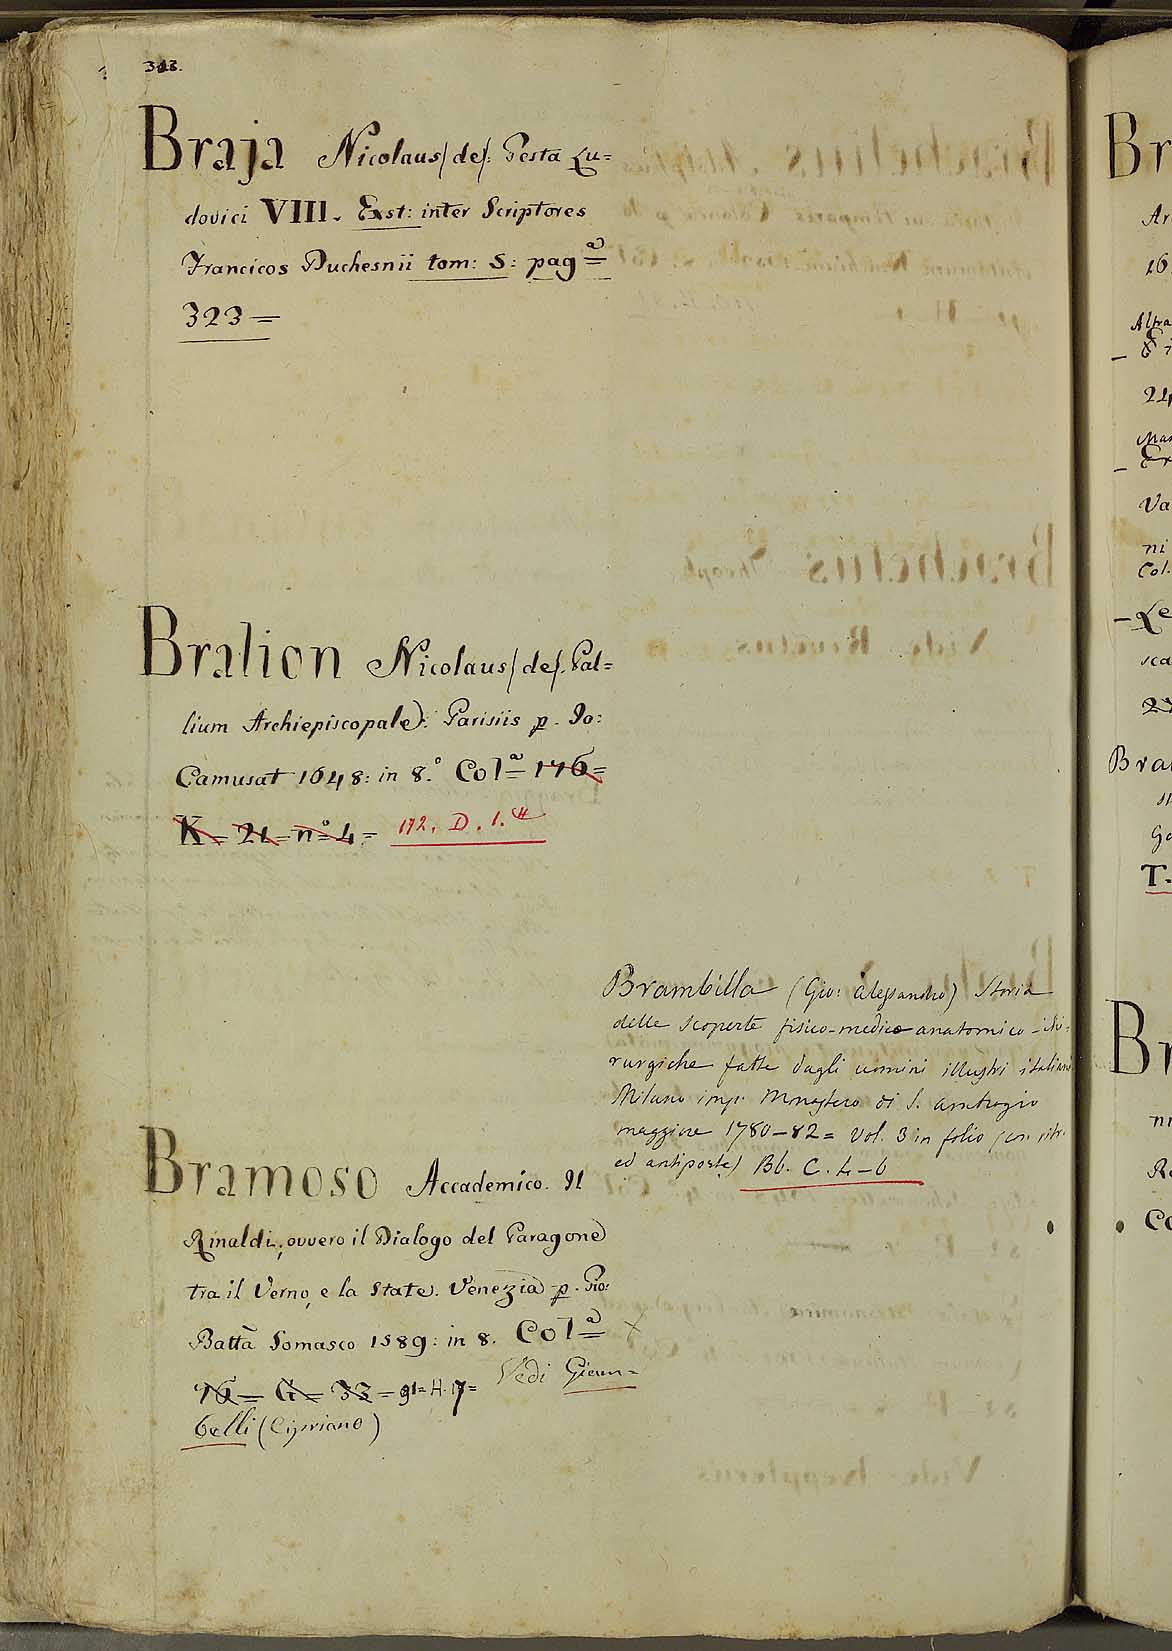 343.
Braja Nicolaus/de/: Gesta Lu=
dovici VIII. Exst: inter Scriptores
Francicos Duchesnii tom: 5: pag.ª
323=
Bralion Nicolaus/de/. Pal=
lium Archiepiscopale: Parisiis p. Jo:
Camusat 1648: in 8.º Col.ª 176=
K= 21= nº 4= 172. D. 1.
Brambilla (Gio: Alessandro) Storia
delle scoperte fisico-medico anatomico-chi=
rurgiche fatte dagli uomini illustri italiani
Milano imp: Monastero di S. Ambrogio
maggiore 1780-82= Vol. 3 in folio (con ritr.
ed antiporte) Bb. C. 4-6
Bramoso Accademico. Il
Rinaldi, ovvero il Dialogo del Paragone
tra il Verno, e la State. Venezia p. Gio:
Batta Somasco 1589: in 8. Col.ª
76= G= 33= 91=H.17=
Vedi Giam=
belli (Cipriano)
Br
Ar
16
Altra
24
Va
ni
Col.
Le
sca
27
Bra
T.
Br
ni
Co